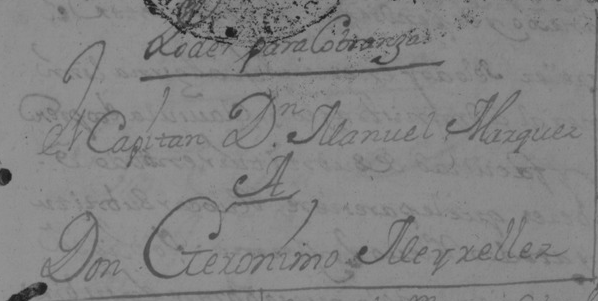 Poder para Cobranza
el Capitan Dn Manuel Marquez
A
Don Geronimo Meyrelles